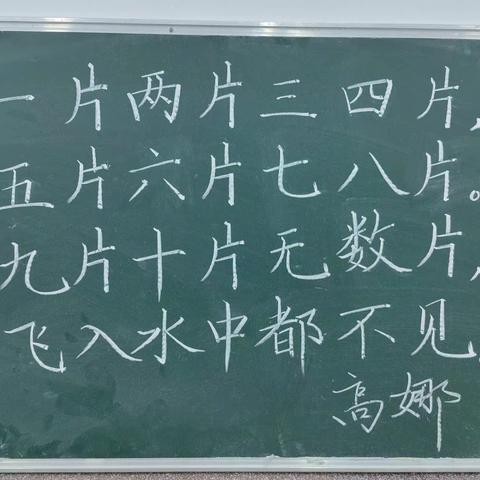 一片两片三四片，
五片六片七八片。
九片十片无数片，
飞入水中都不见。
高娜